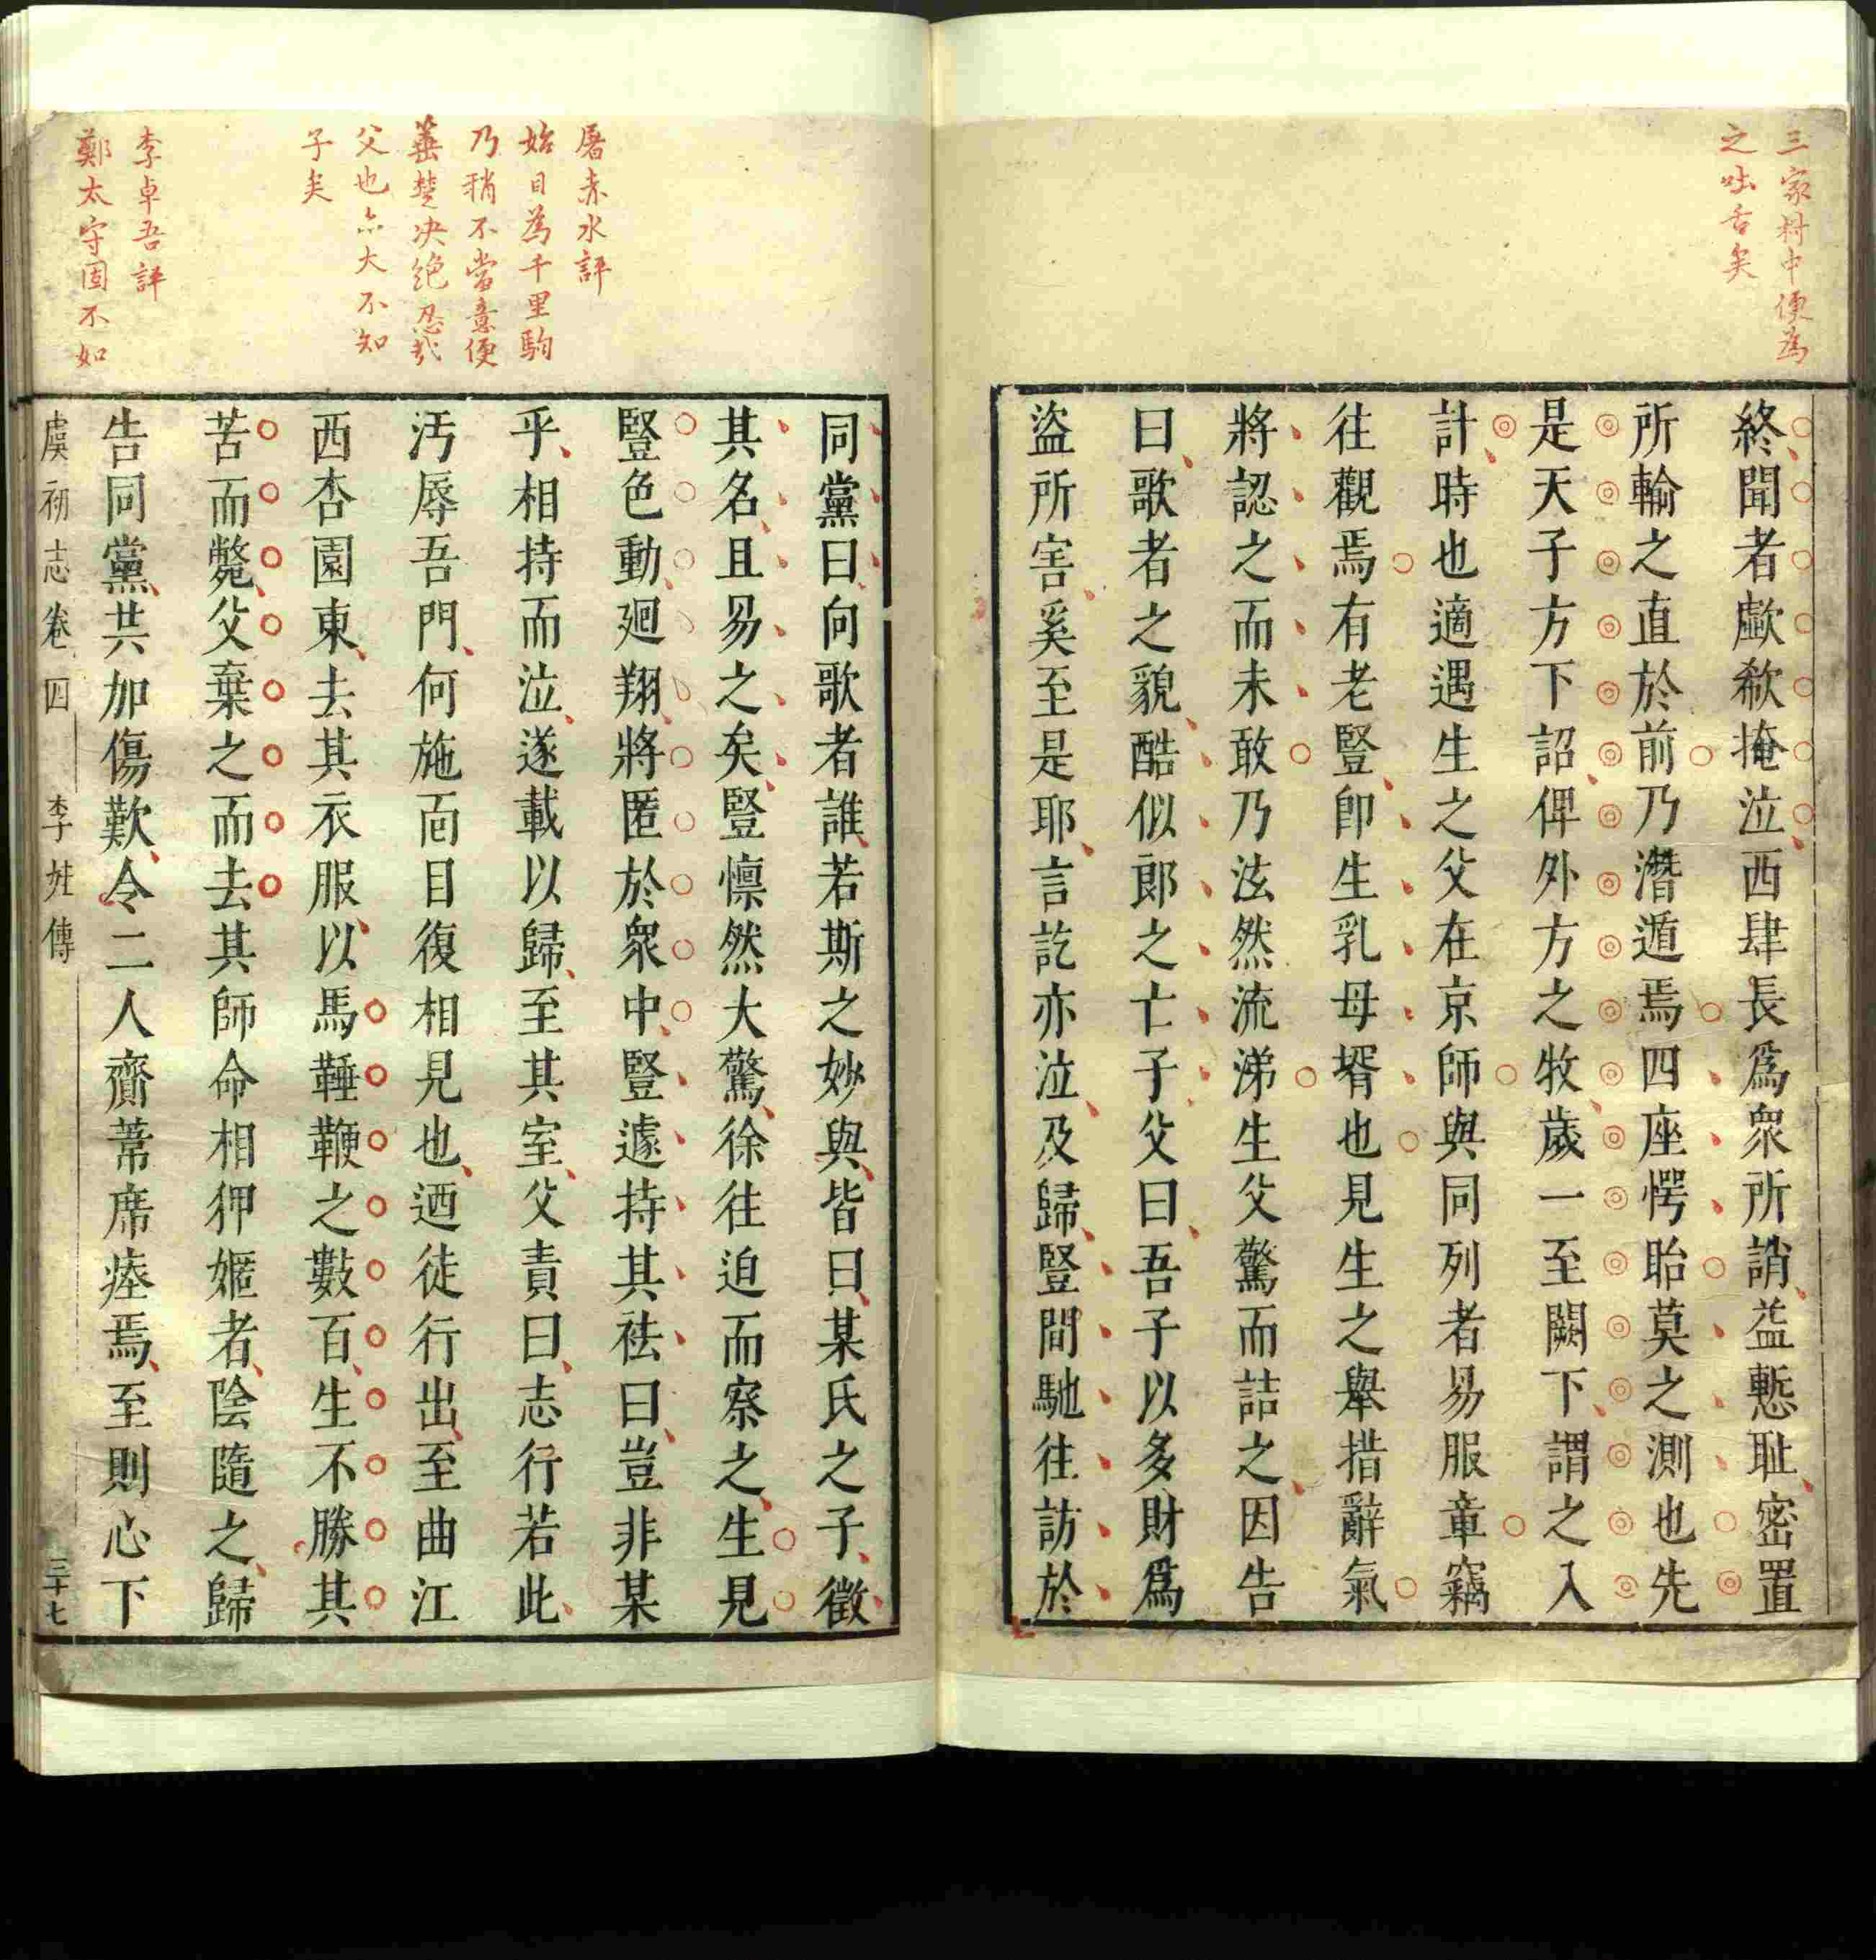 三家村中便為
之吐舌矣
終聞者歔欷掩泣西肆長爲衆所誚益慙耻密置
所輸之直於前乃潛遁焉四座愕眙莫之測也先
是天子方下詔俾外方之牧歲一至闕下謂之入
計時也適遇生之父在京師與同列者易服章竊
往觀焉有老豎卽生乳母壻也見生之舉措辭氣
將認之而未敢乃泫然流涕生父驚而詰之因告
曰歌者之貌酷似郎之亡子父曰吾子以多財爲
盜所害奚至是耶言訖亦泣及歸豎間馳往訪於
屠赤水評
始目為千里駒
乃稍不當意便
菙楚决絶忍哉
父也亦大不知
子矣
李卓吾評
鄭太守固不如
同黨曰向歌者誰若斯之妙與皆曰某氏之子徵
其名且易之矣豎懍然大驚徐往迫而察之生見
豎色動廻翔將匿於衆中豎遽持其袪曰豈非某
乎相持而泣遂載以歸至其室父責曰志行若此
汚辱吾門何施面目復相見也迺徒行出至曲江
西杏園東去其衣服以馬鞭鞭之數百生不勝其
苦而斃父棄之而去其師命相狎㜸者陰隨之歸
告同黨共加傷歎令二人齎葦席瘞焉至則心下
虞初志卷四 李娃傳 三十七